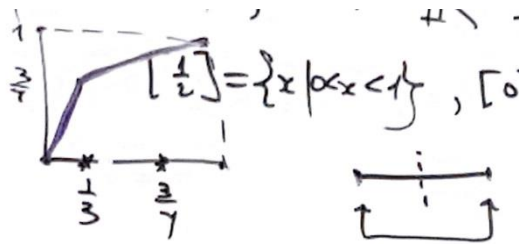 1
3/4
[1/2] = {x | 0<x<1} , [0
1
1/3 3/4